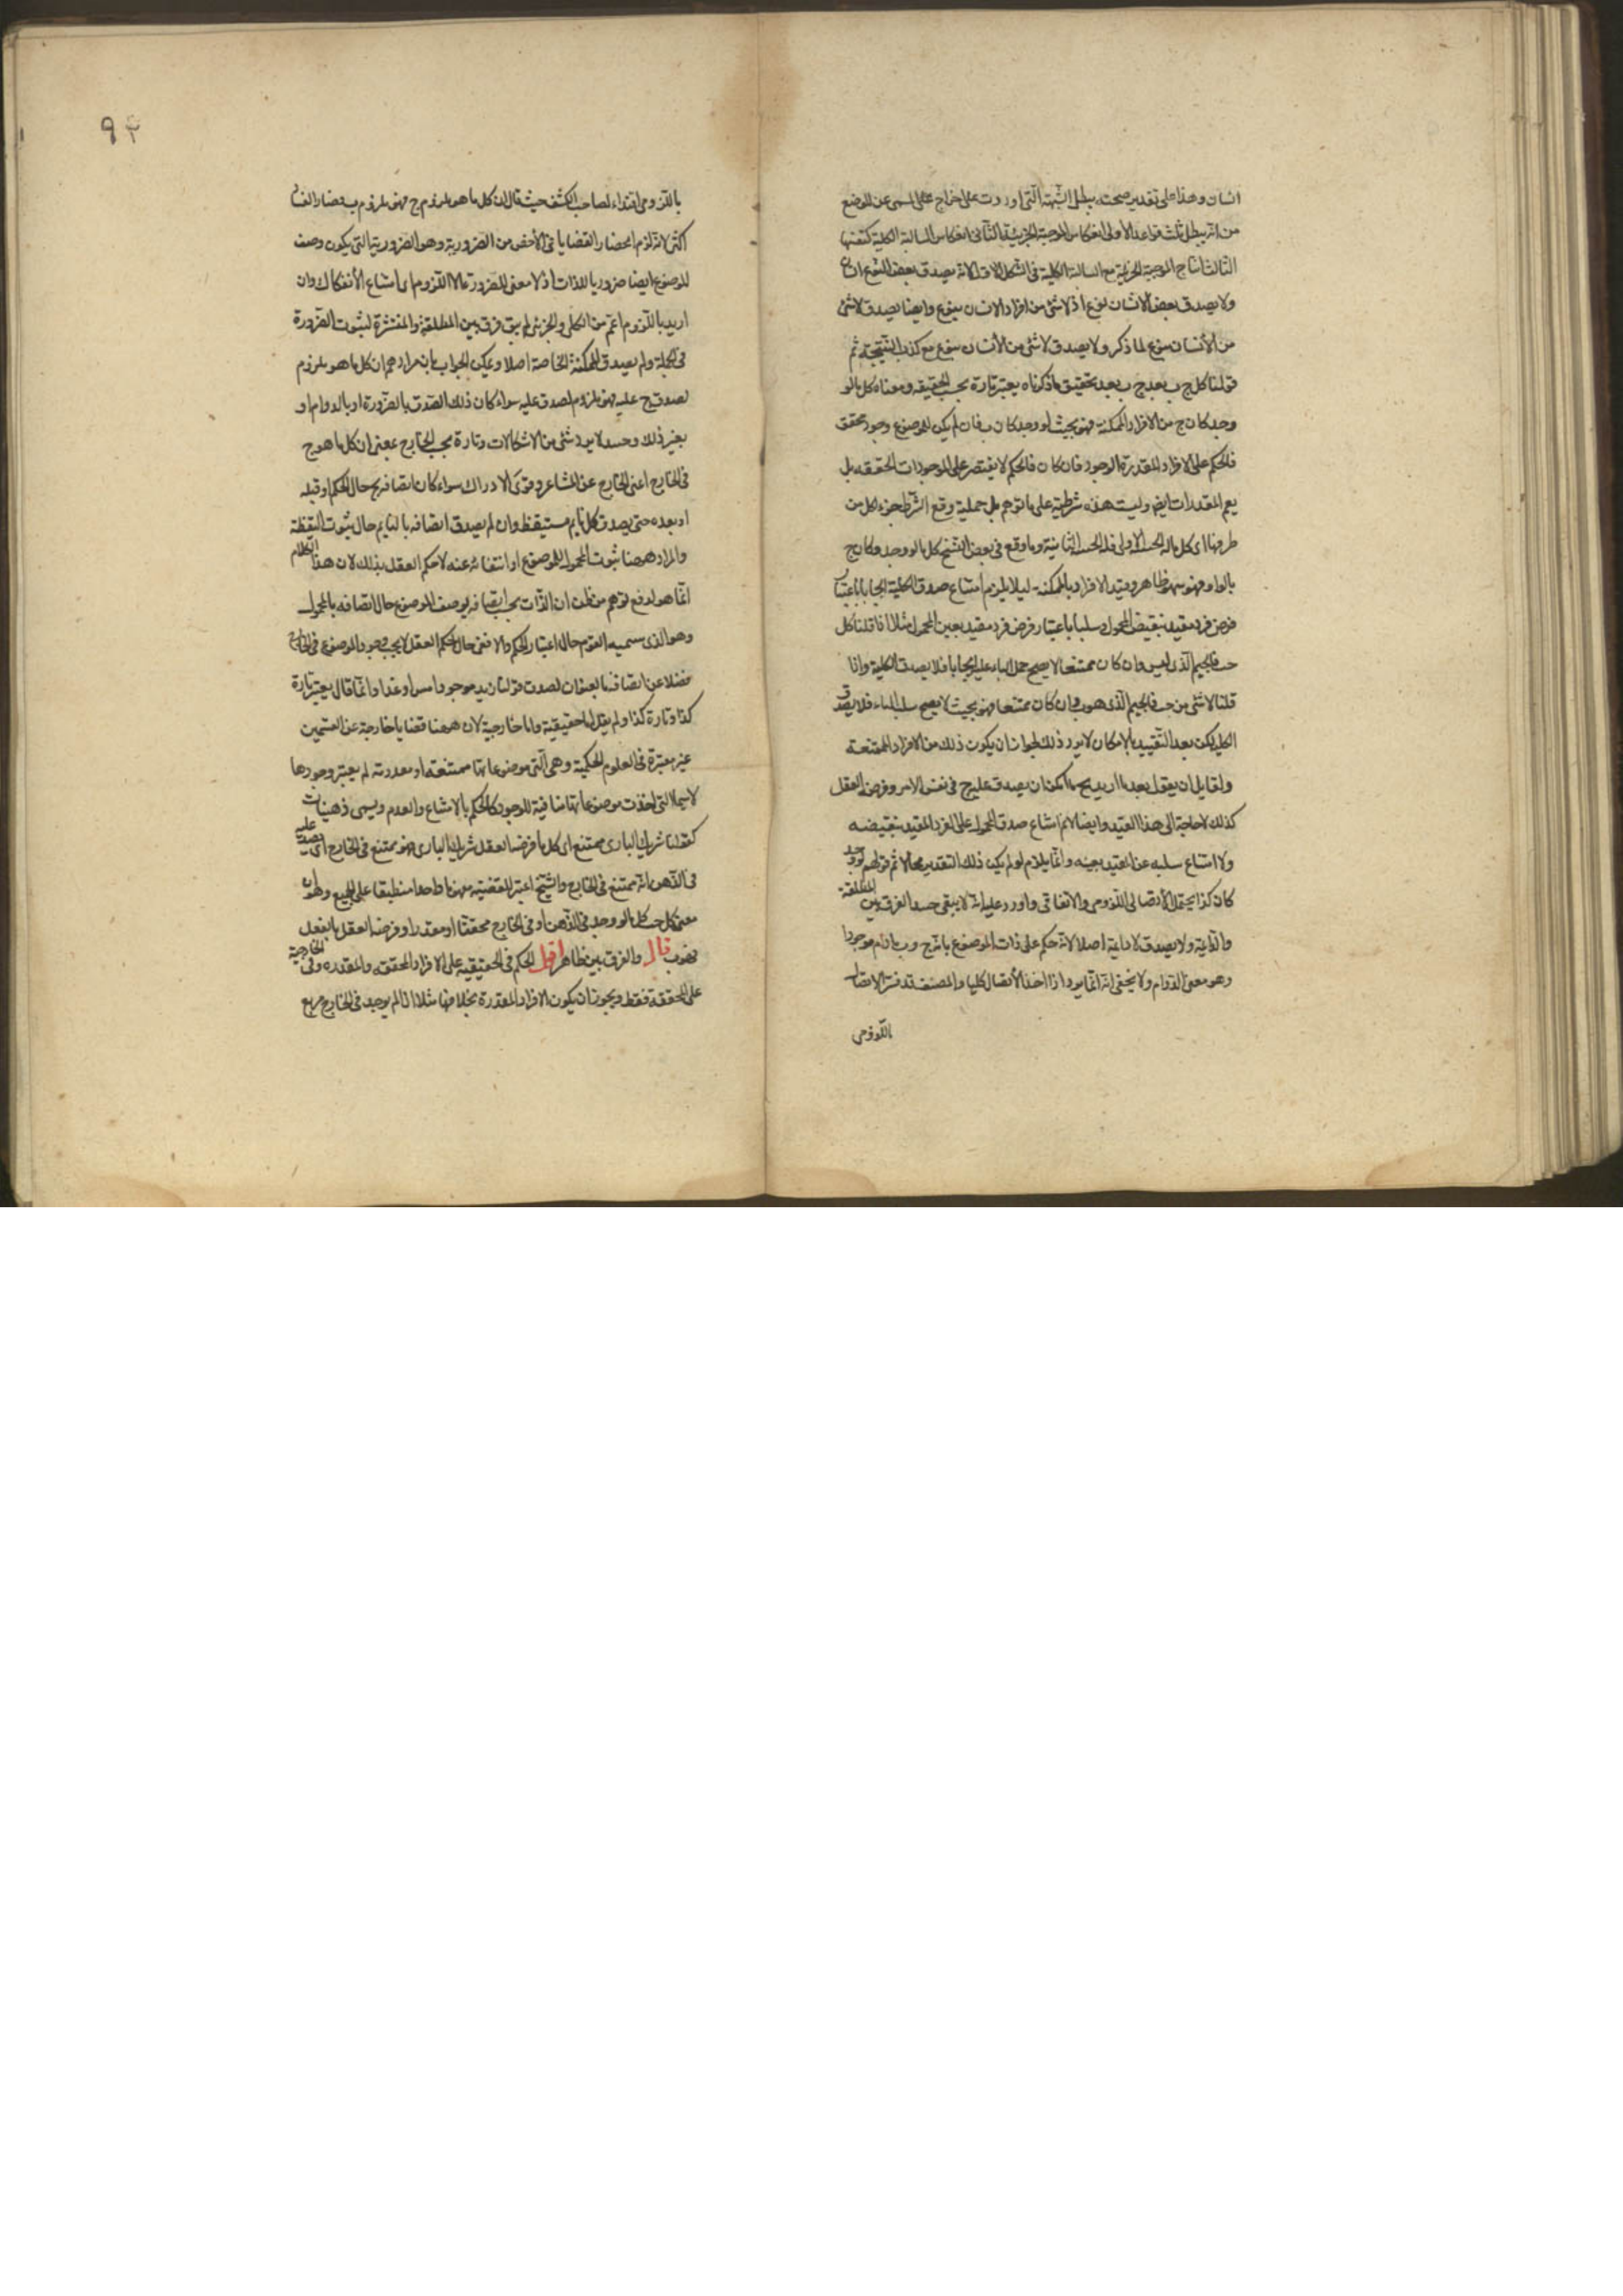 انسان وهذا على تقدير صحته يبطل الشبهة التى اوردت على اخراج المسمى عن الوضع
من انه يبطل ثلث قواعد الأولى انعكاس الموجبة الجزئية الثانى انعكاس السالبة الكلية كنفسها
الثالث انتاج الموجبة الجزئية مع السالبة الكلية فى الشكل الاول لانه يصدق بعض النوع انسان
ولا يصدق بعض الانسان نوع اذ لا شئ من افراد الانسان بنوع وايضا يصدق لا شئ
من الأنسان بنوع لما ذكر ولا يصدق لا شئ من الأنسان بنوع مع كذب النتيجة ثم
قولنا كل ج ب بعد تحقيق ما ذكرناه يعتبر تارة بحسب الحقيقه ومعناه كل ما لو
وجد كان ج من الافراد الممكنة فهو بحيث لو وجد كان ب فان لم يكن للموضوع وجود محقق
فالحكم على الافراد المقدرة الوجود فان كان فالحكم لا يقتصر على الموجودات الحقيقه بل
يعم المقدرات ايضا وليست هذه شرطية على ما توهم بل حملية وقع الشرط جزء لكل من
طرفيها اى كل ما له الحيثية الاولى فله الحيثية الثانية وما وقع فى بعض النسخ كل ما لو وجد وكان ج
بالواو فهو سهو ظاهر وقيد الافراد بالممكنة ليلا يلزم امتناع صدق الكلية ايجابا باعتبار
فرض فرد مقيد بنقيض المحمول وسلبا باعتبار فرض فرد مقيد بعين المحمول مثلا اذا قلنا كل
ج ب فالجيم الذى ليس ب وان كان ممتنعا لا يصح حمل الباء عليه ايجابا فلا يصدق الكلية واذا
قلنا لا شئ من ج ب فالجيم الذى هو ب وان كان ممتنعا فهو بحيث لا يصح سلب الباء فلا يصدق
الكلى لكن بعد التقييد بالإمكان لا يرد ذلك لجواز ان يكون ذلك من الافراد الممتنعة
ولقايل ان يقول بعد ما اريد بج ما امكن ان يصدق عليه ج فى نفس الامر وفرضه العقل
كذلك لا حاجة الى هذا القيد وايضا لانم امتناع صدق المحمول على الفرد المقيد بنقيضه
ولا امتناع سلبه عن المقيد بعينه وانما يلزم لو لم يكن ذلك التقدير محالا ثم قولهم لو وجد
كان كذا يحتمل الأتصالى اللزومى والاتفاقى واورد عليه انه لا يبقى حينئذ الفرق بين المطلقة
والدايمة ولا يصدق لا دايمة اصلا لانه حكم على ذات الموضوع بانه ج وب ما دام موجودا
وهو معنى الدوام ولا يخفى انه انما يرد اذا اخذ الأتصال كليا والمصنف قد فسر الاتصال
اللزومى
٩٢
باللزومى اقتداء لصاحب الكشف حيث قال ان كل ما هو ملزوم ج فهو ملزوم ب فصار الفساد
اكثر لانه لزم انحصار القضايا فى الأخص من الضرورية وهو الضرورية التى يكون وصف
الموضوع ايضا ضروريا للذات اذ لا معنى للضرورة الا اللزوم اى امتناع الأنفكاك وان
اريد باللزوم اعم من الكلى والجزئى لم يبق فرق بين المطلقة والمنتشرة لثبوت الضرورة
فى الجملة ولم يصدق الممكنة الخاصة اصلا ويمكن الجواب بان مرادهم ان كل ما هو ملزوم
لصدق ج عليه فهو ملزوم لصدق ب عليه سواء كان ذلك الصدق بالضرورة او بالدوام او
بغير ذلك وحينئذ لا يرد شئ من الاشكالات وتارة بحسب الخارج بمعنى ان كل ما هو ج
فى الخارج اعنى الخارج عن المشاعر وقوى الادراك سواء كان اتصافه بج حال الحكم او قبله
او بعده حتى يصدق كل نايم مستيقظ وان لم يصدق اتصافه بالنايم حال ثبوت اليقظة
والمراد ههنا ثبوت المحمول للموضوع او انتفائه عنه لا حكم العقل بذلك لان هذا الكلام
انما هو لدفع توهم من ظن ان الذات يجب اتصافه بوصف الموضوع حال اتصافه بالمحمول
وهو الذى يسميه القوم حال اعتبار الحكم والا ففى حال حكم العقل لا يجب وجود الموضوع فى الخارج
فضلا عن اتصافه بالعنوان لصدق قولنا زيد موجود امس او غدا وانما قال يعتبر تارة
كذا وتارة كذا ولم يقل اما حقيقية واما خارجية لان ههنا قضايا خارجة عن القسمين
غير معتبرة فى العلوم الحكمية وهى التى موضوعاتها ممتنعة او معدومة لم يعتبر وجودها
لا سيما التى اخذت موضوعاتها منافية للوجود كالحكم بالامتناع والعدم ويسمى ذهنيات
كقولنا شريك البارى ممتنع اى كل ما فرضه العقل شريك البارى فهو ممتنع فى الخارج اى يصدق عليه
فى الذهن انه ممتنع فى الخارج والشيخ اعتبر للقضية مفهوما واحدا منطبقا على الجميع وهو ان
معنى كل ج ب كل ما لو وجد فى الذهن او فى الخارج محققا او مقدرا وفرضه العقل ج بالفعل
فهو ب قال والفرق بين ظاهر اقول الحكم فى الحقيقيه على الافراد المحققه والمقدره وفى الخارجية
على المحققة فقط ويجوز ان يكون الافراد المقدرة بخلافها مثلا اذا لم يوجد فى الخارج مربع